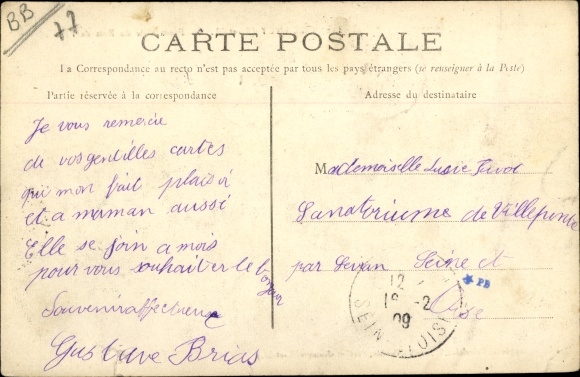 BB
77
CARTE POSTALE
La Correspondance au recto n'est pas acceptée par tous les pays étrangers (se renseigner à la Poste)
Partie réservée à la correspondance
Je vous remercie
de vos gentilles cartes
qui mon fait plaisir
et a maman aussi
Elle se join a mois
pour vous souhaiter le bonjour
Souvenir affectueux
Gustave Brias
Adresse du destinataire
Mademoiselle Lucie
Sanatoriume de Villepinte
par Sevran Seine et
Oise
12
18 -2
09
SEIN OISE
PB